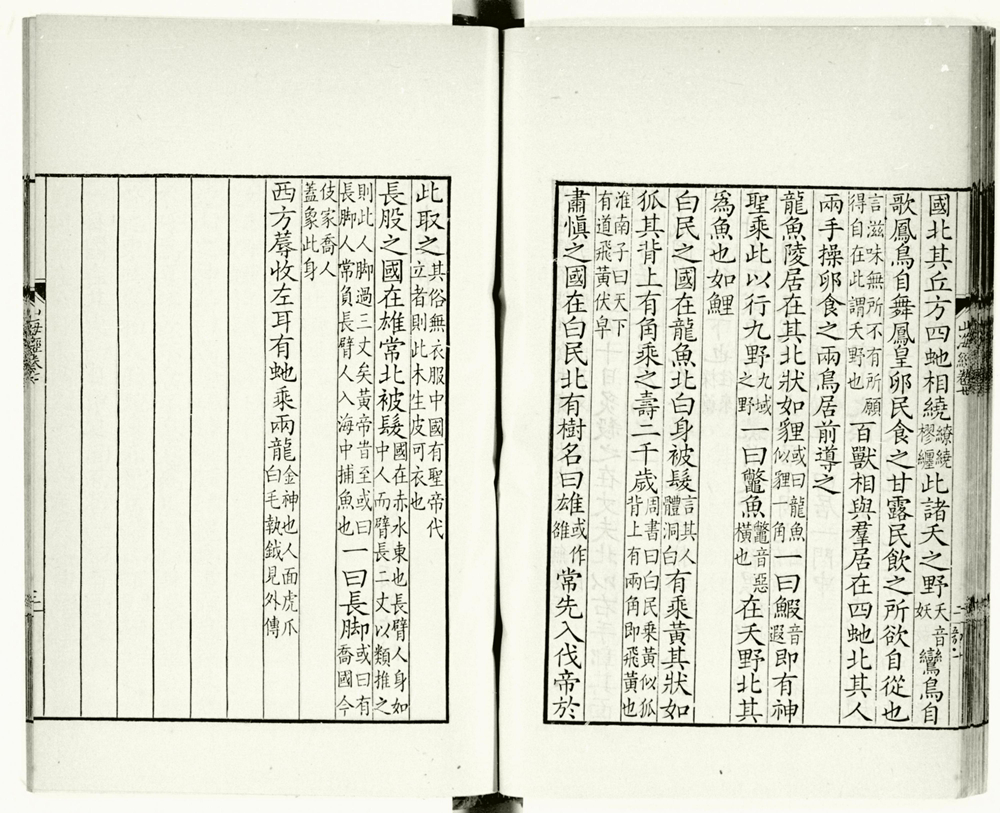 國北其丘方四虵相繞繚繞樛纏此諸夭之野夭音妖鸞鳥自
歌鳳鳥自舞鳳皇卵民食之甘露民飲之所欲自從也
言滋味無所不有所願得自在此謂夭野也百獸相與羣居在四虵北其人
兩手操卵食之兩鳥居前導之
龍魚陵居在其北狀如貍或曰龍魚似貍一角一曰鰕音遐即有神
聖乘此以行九野九域之野一曰鼈魚鼈音惡橫也在夭野北其
爲魚也如鯉
白民之國在龍魚北白身被髮言其人體洞白有乘黃其狀如
狐其背上有角乘之壽二千歲周書曰白民乘黃似狐背上有兩角即飛黃也
淮南子曰天下有道飛黃伏皁
肅慎之國在白民北有樹名曰雄或作雒常先入伐帝於
此取之其俗無衣服中國有聖帝代立者則此木生皮可衣也
長股之國在雄常北被髮國在赤水東也長臂人身如中人而臂長二丈以類推之
則此人脚過三丈矣黃帝旹至或曰長脚人常負長臂人入海中捕魚也一曰長脚或曰有喬國今
伎家喬人蓋象此身
西方蓐收左耳有虵乘兩龍金神也人面虎爪白毛執鉞見外傳